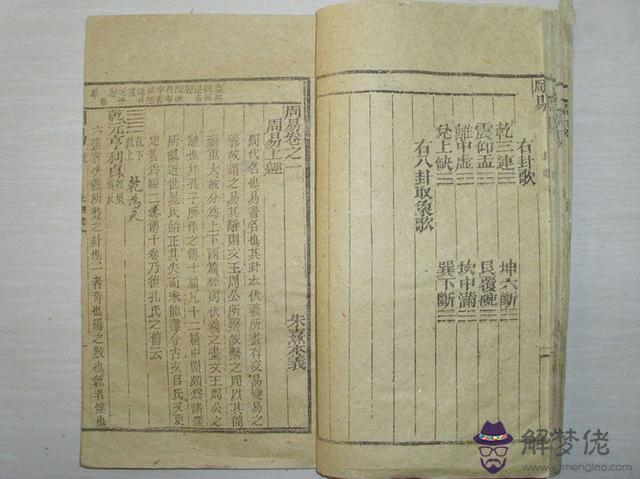 周易
右卦歌
乾三連☰ 坤六斷☷
震仰盂☳ 艮覆碗☶
離中虛☲ 坎中滿☵
兌上缺☱ 巽下斷☴
右八卦取象歌
周易卷之一
周易上經
朱熹本義
周代名也易書名也其卦本伏羲所畫有交易變易之
義故謂之易其辭則文王周公所繫故繫之周以其簡
袠重大故分爲上下兩篇經則伏羲之畫文王周公之
辭也并孔子所作之傳十篇凡十二篇中間頗爲諸儒
所亂近世晁氏始正其失而未能盡合古文呂氏又更
定著爲經二卷傳十卷乃復孔氏之舊云
乾下
乾上
乾爲天
乾元亨利貞
六畫者伏羲所畫之卦也一者奇也陽之數也乾者健也
解梦佬
jiemenglao.com